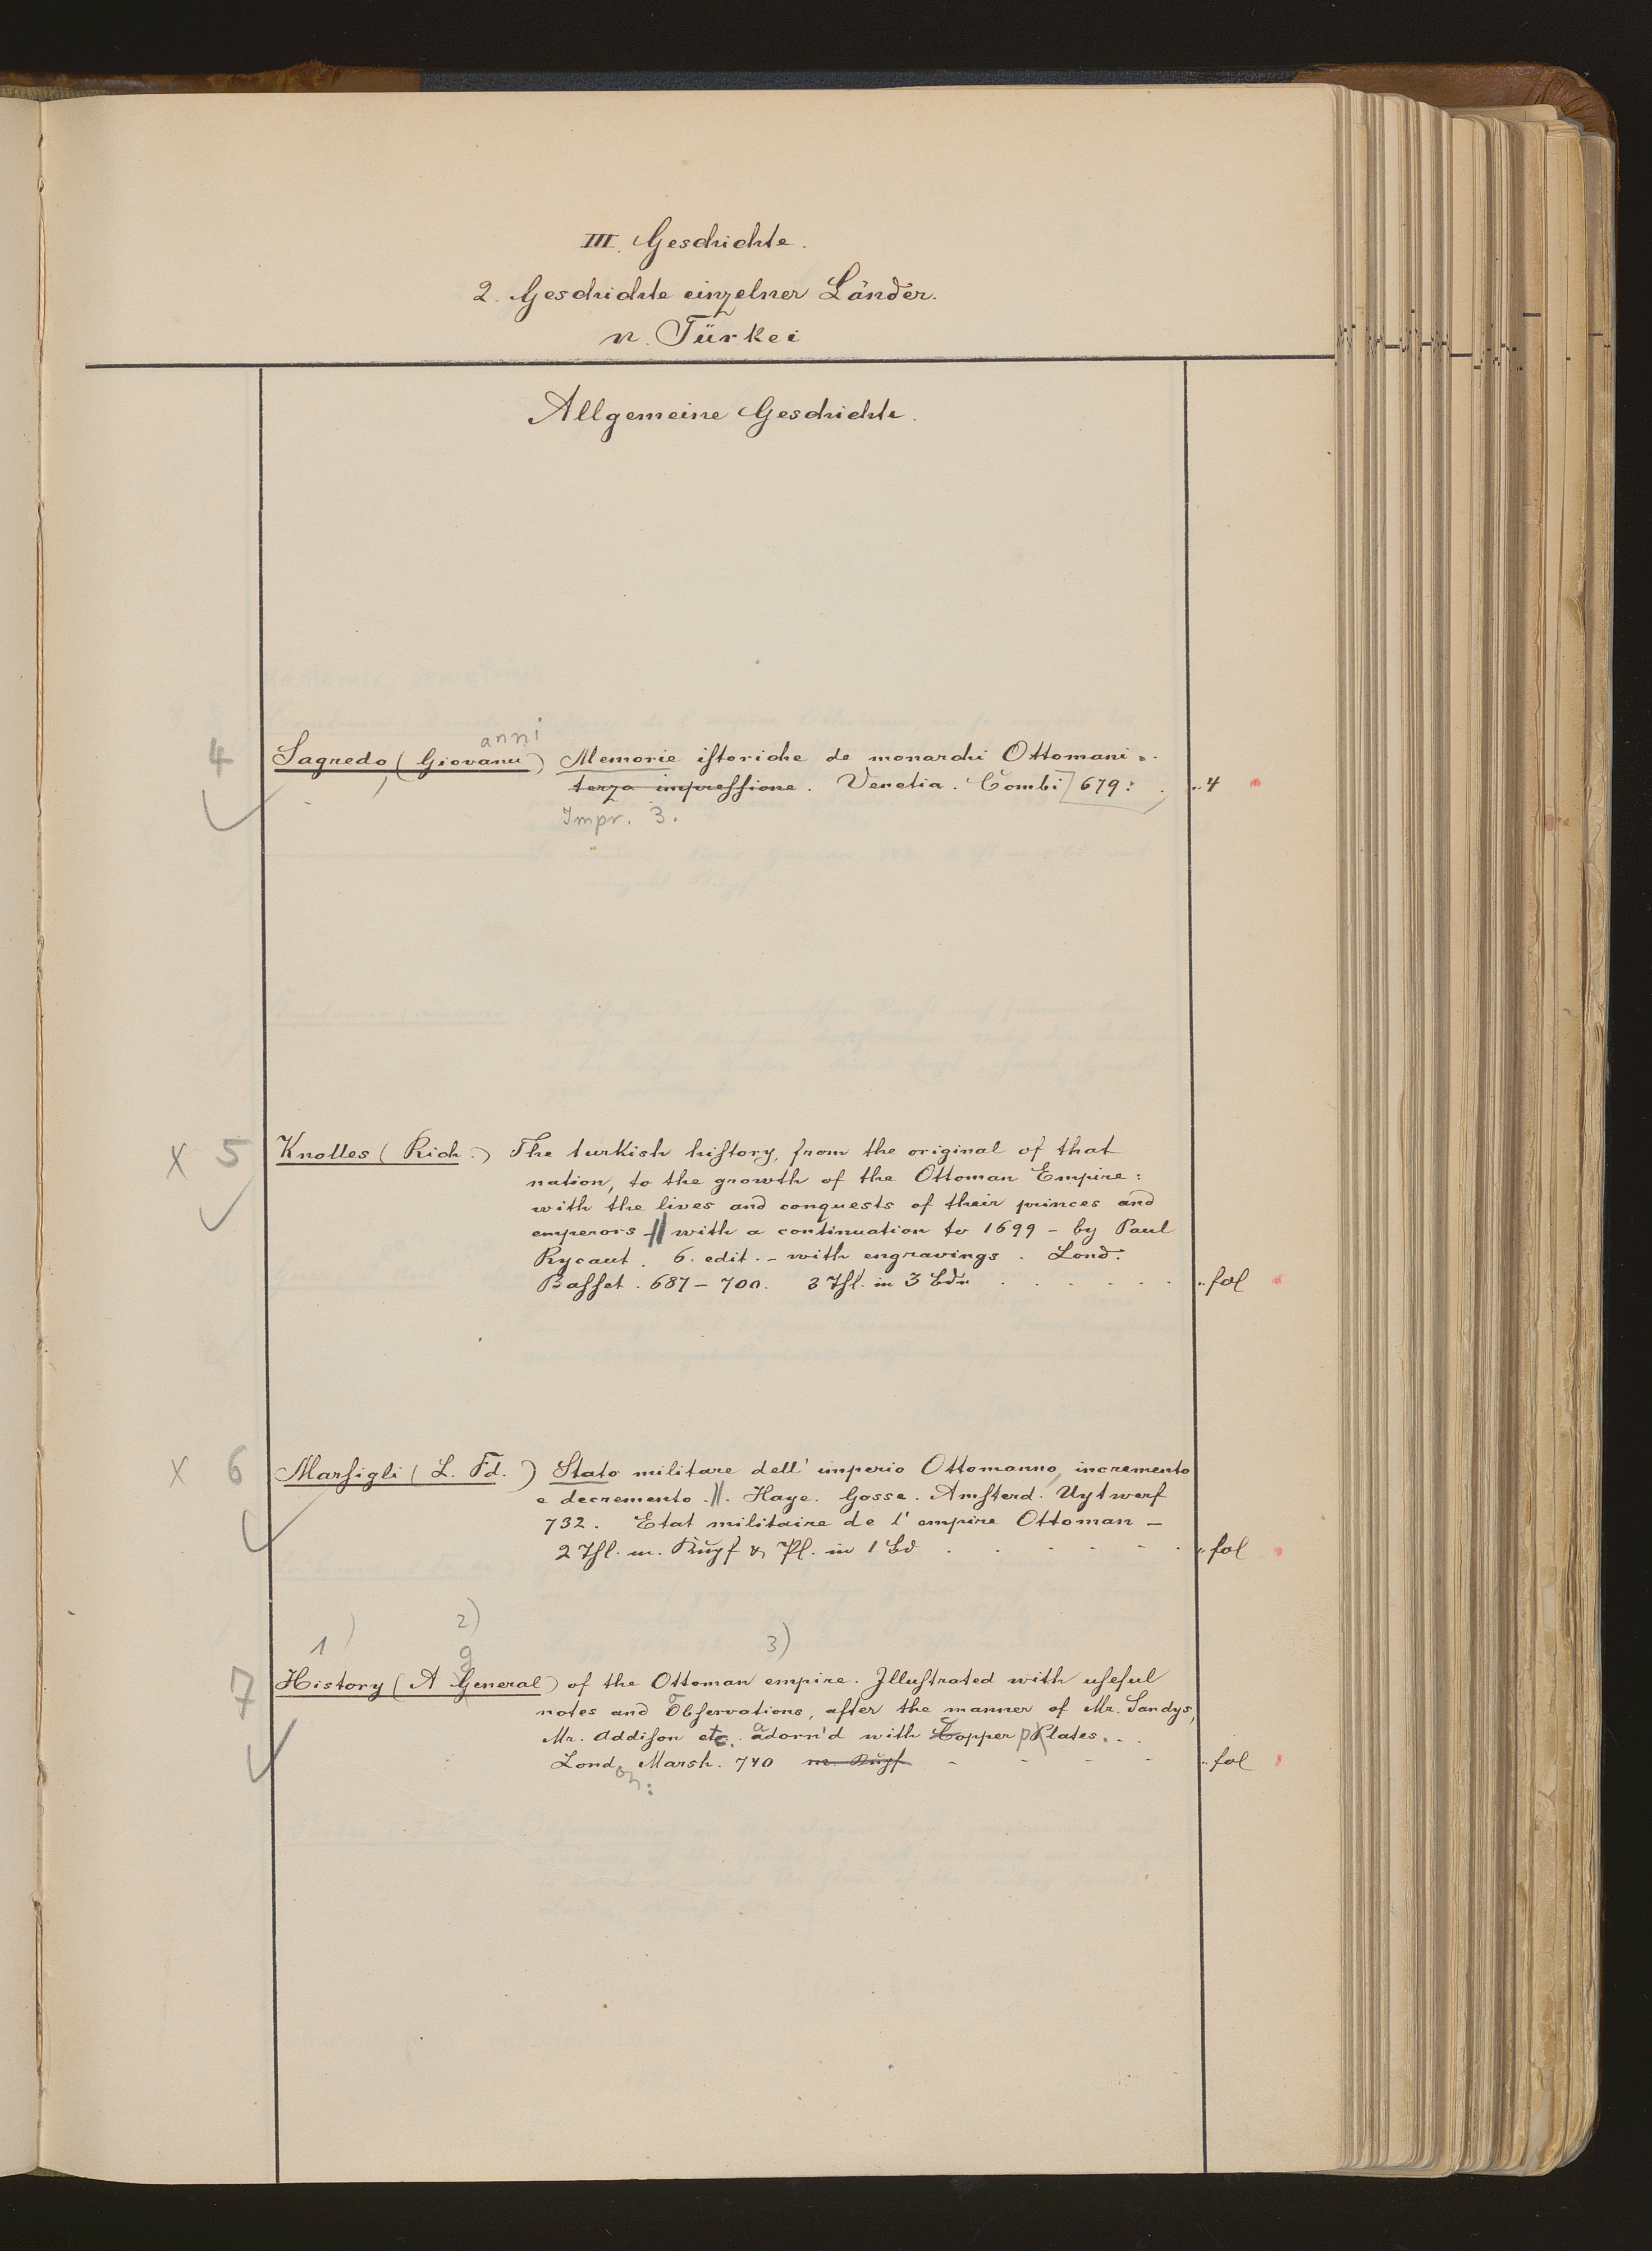 III. Geschichte.
2. Geschichte einzelner Länder.
n. Türkei
Allgemeine Geschichte.
anni
4 Sagredo, (Giovanu) Memorie istoriche de monarchi Ottomani..
terza impressione. Venetia. Combi] 679: . .. 4
Impr. 3.
x 5 Knolles (Rich.) The turkish history, from the original of that
nation, to the growth of the Ottoman Empire:
with the lives and conquests of their princes and
emperors - // with a continuation to 1699 - by Paul
Rycaut. 6. edit. - with engravings. Lond:
Basset. 687 - 700. 3 Thl. in 3 Bdn . . . . . . .. fol
x 6 Marsigli (L. Fd.) Stato militare dell' imperio Ottomanno, incremento
e decremento. //. Haye. Gosse. Amsterd. Uytwerf
732. Etat militaire de l' empire Ottoman -
2 Thl. m. Kupf & Pl. in 1 Bd . . . . . . .. fol
1) 2) 3)
g
7 History (A General) of the Ottoman empire. Illustrated with useful
notes and observations, after the manner of Mr. Sandys,
Mr. Addison etc. adorn'd with copper pPlates. . .
Lond, Marsh. 740 m. Kupf - - - - .. fol
on: